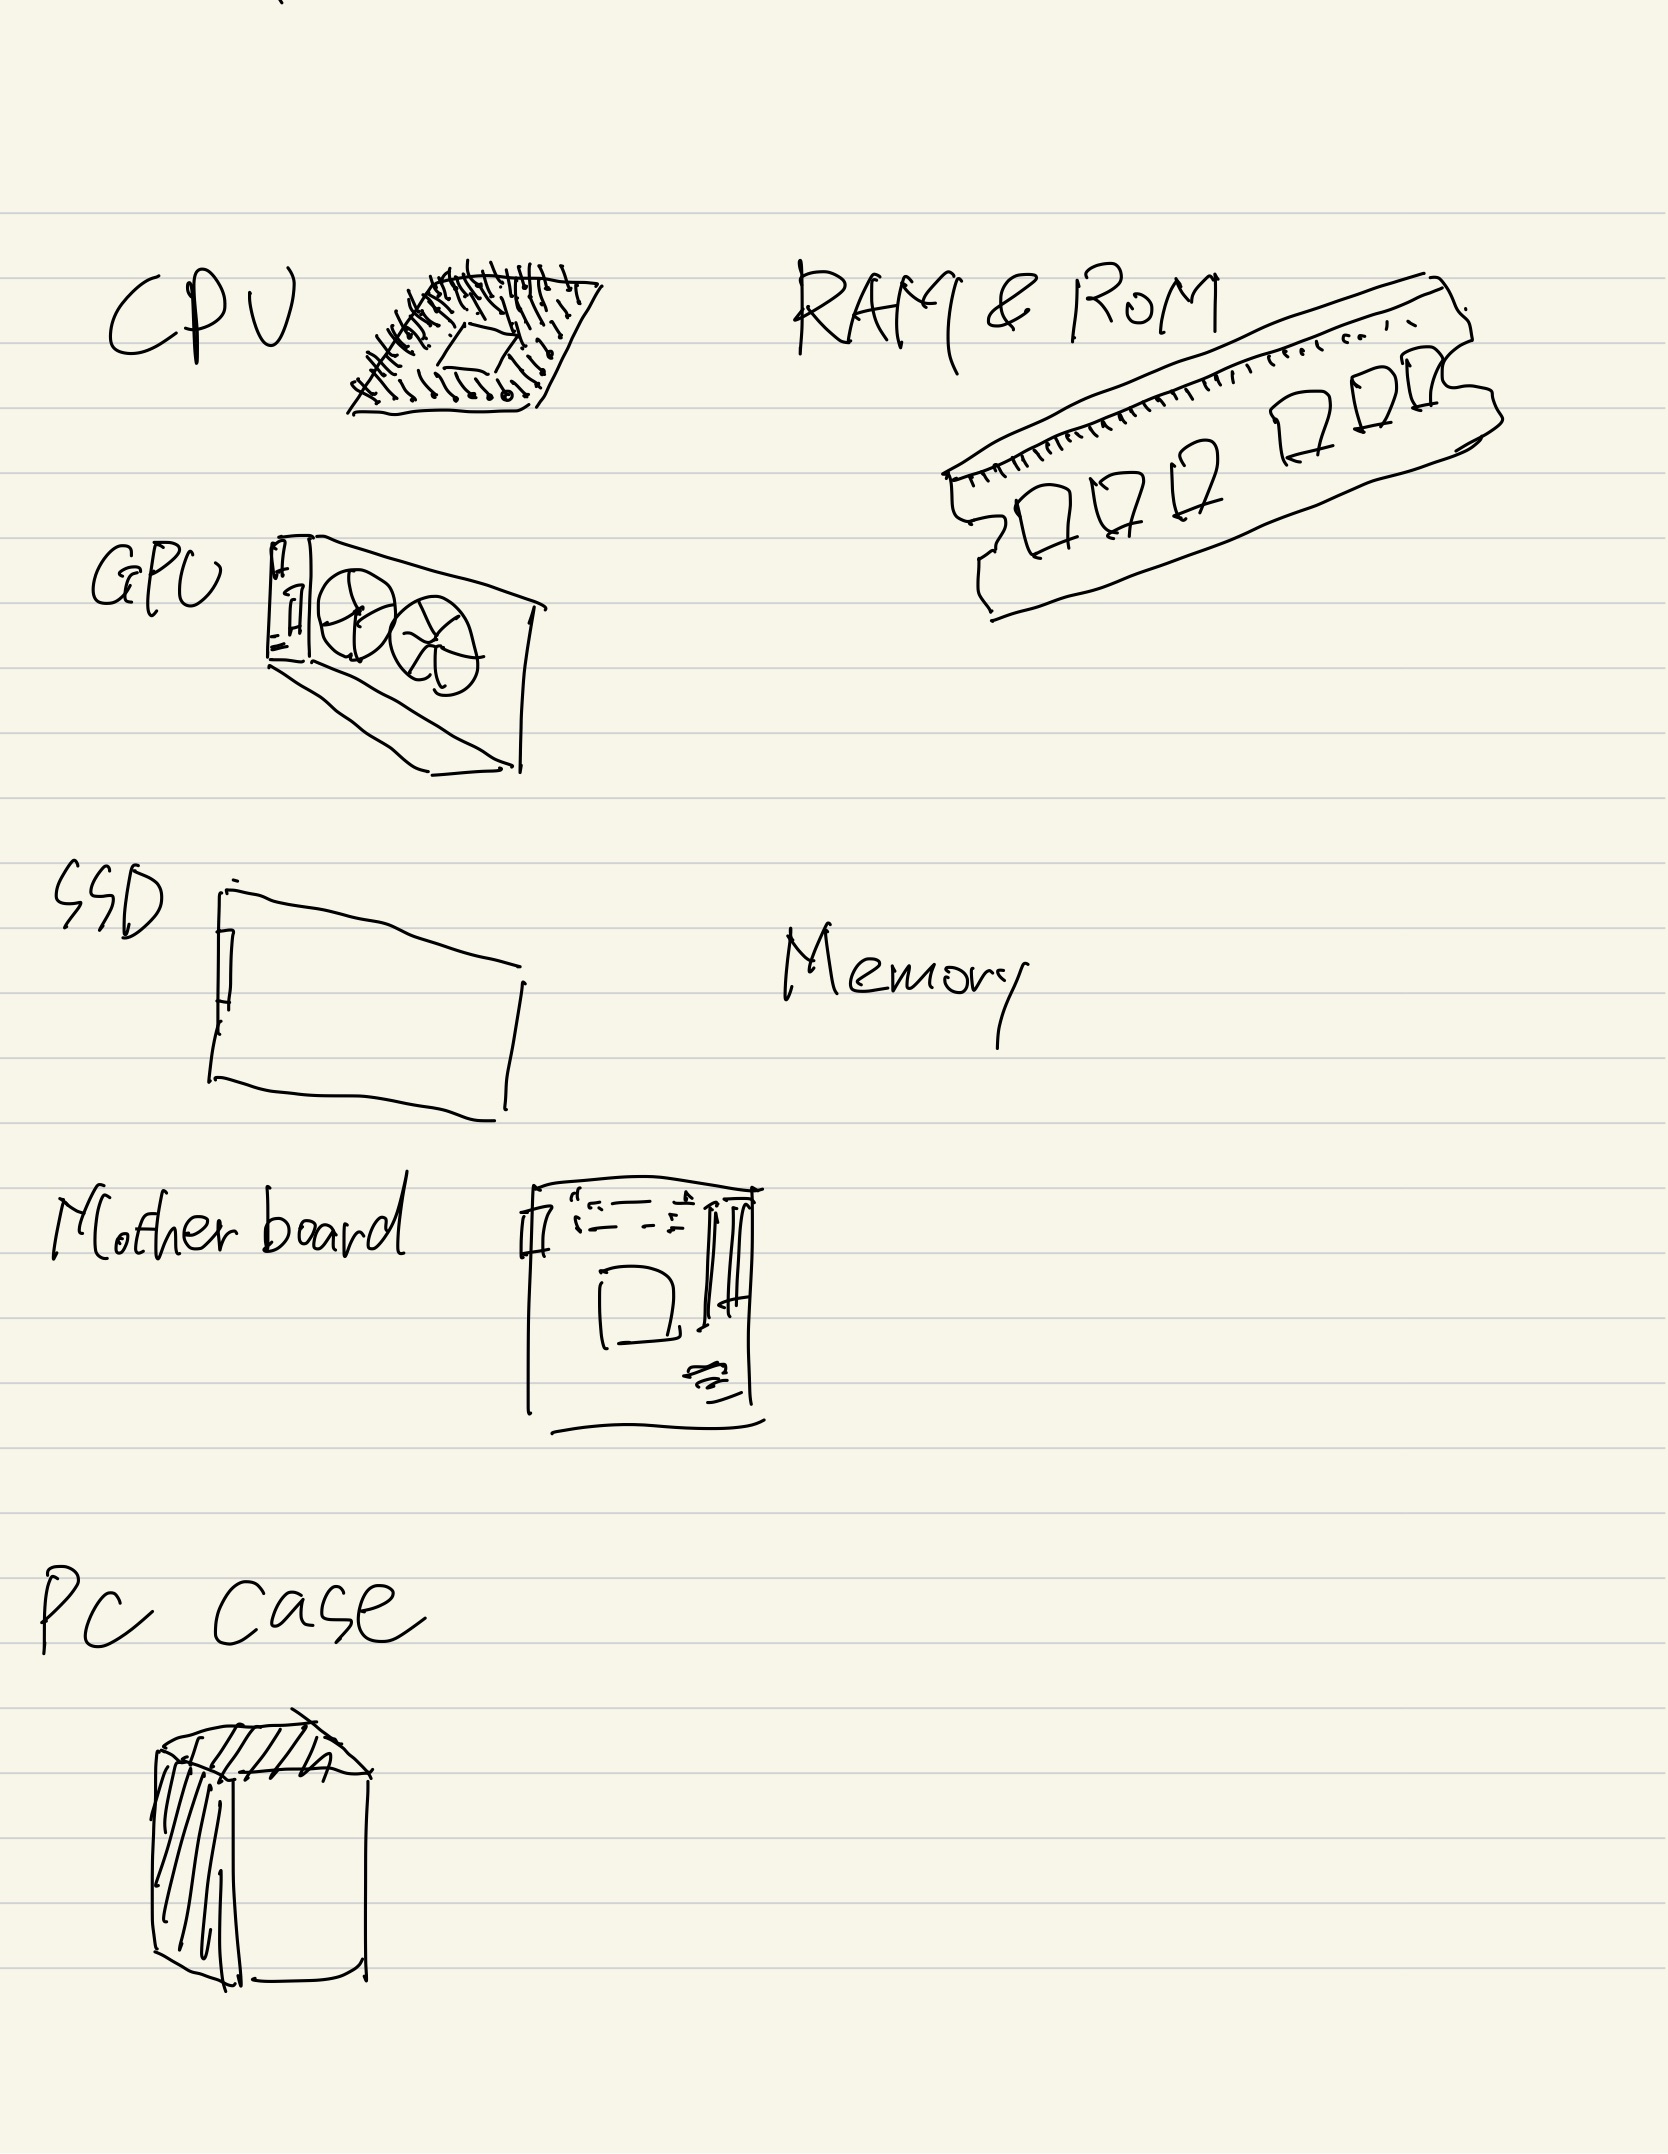 CPU
RAM & ROM
GPU
SSD
Memory
Mother board
PC case